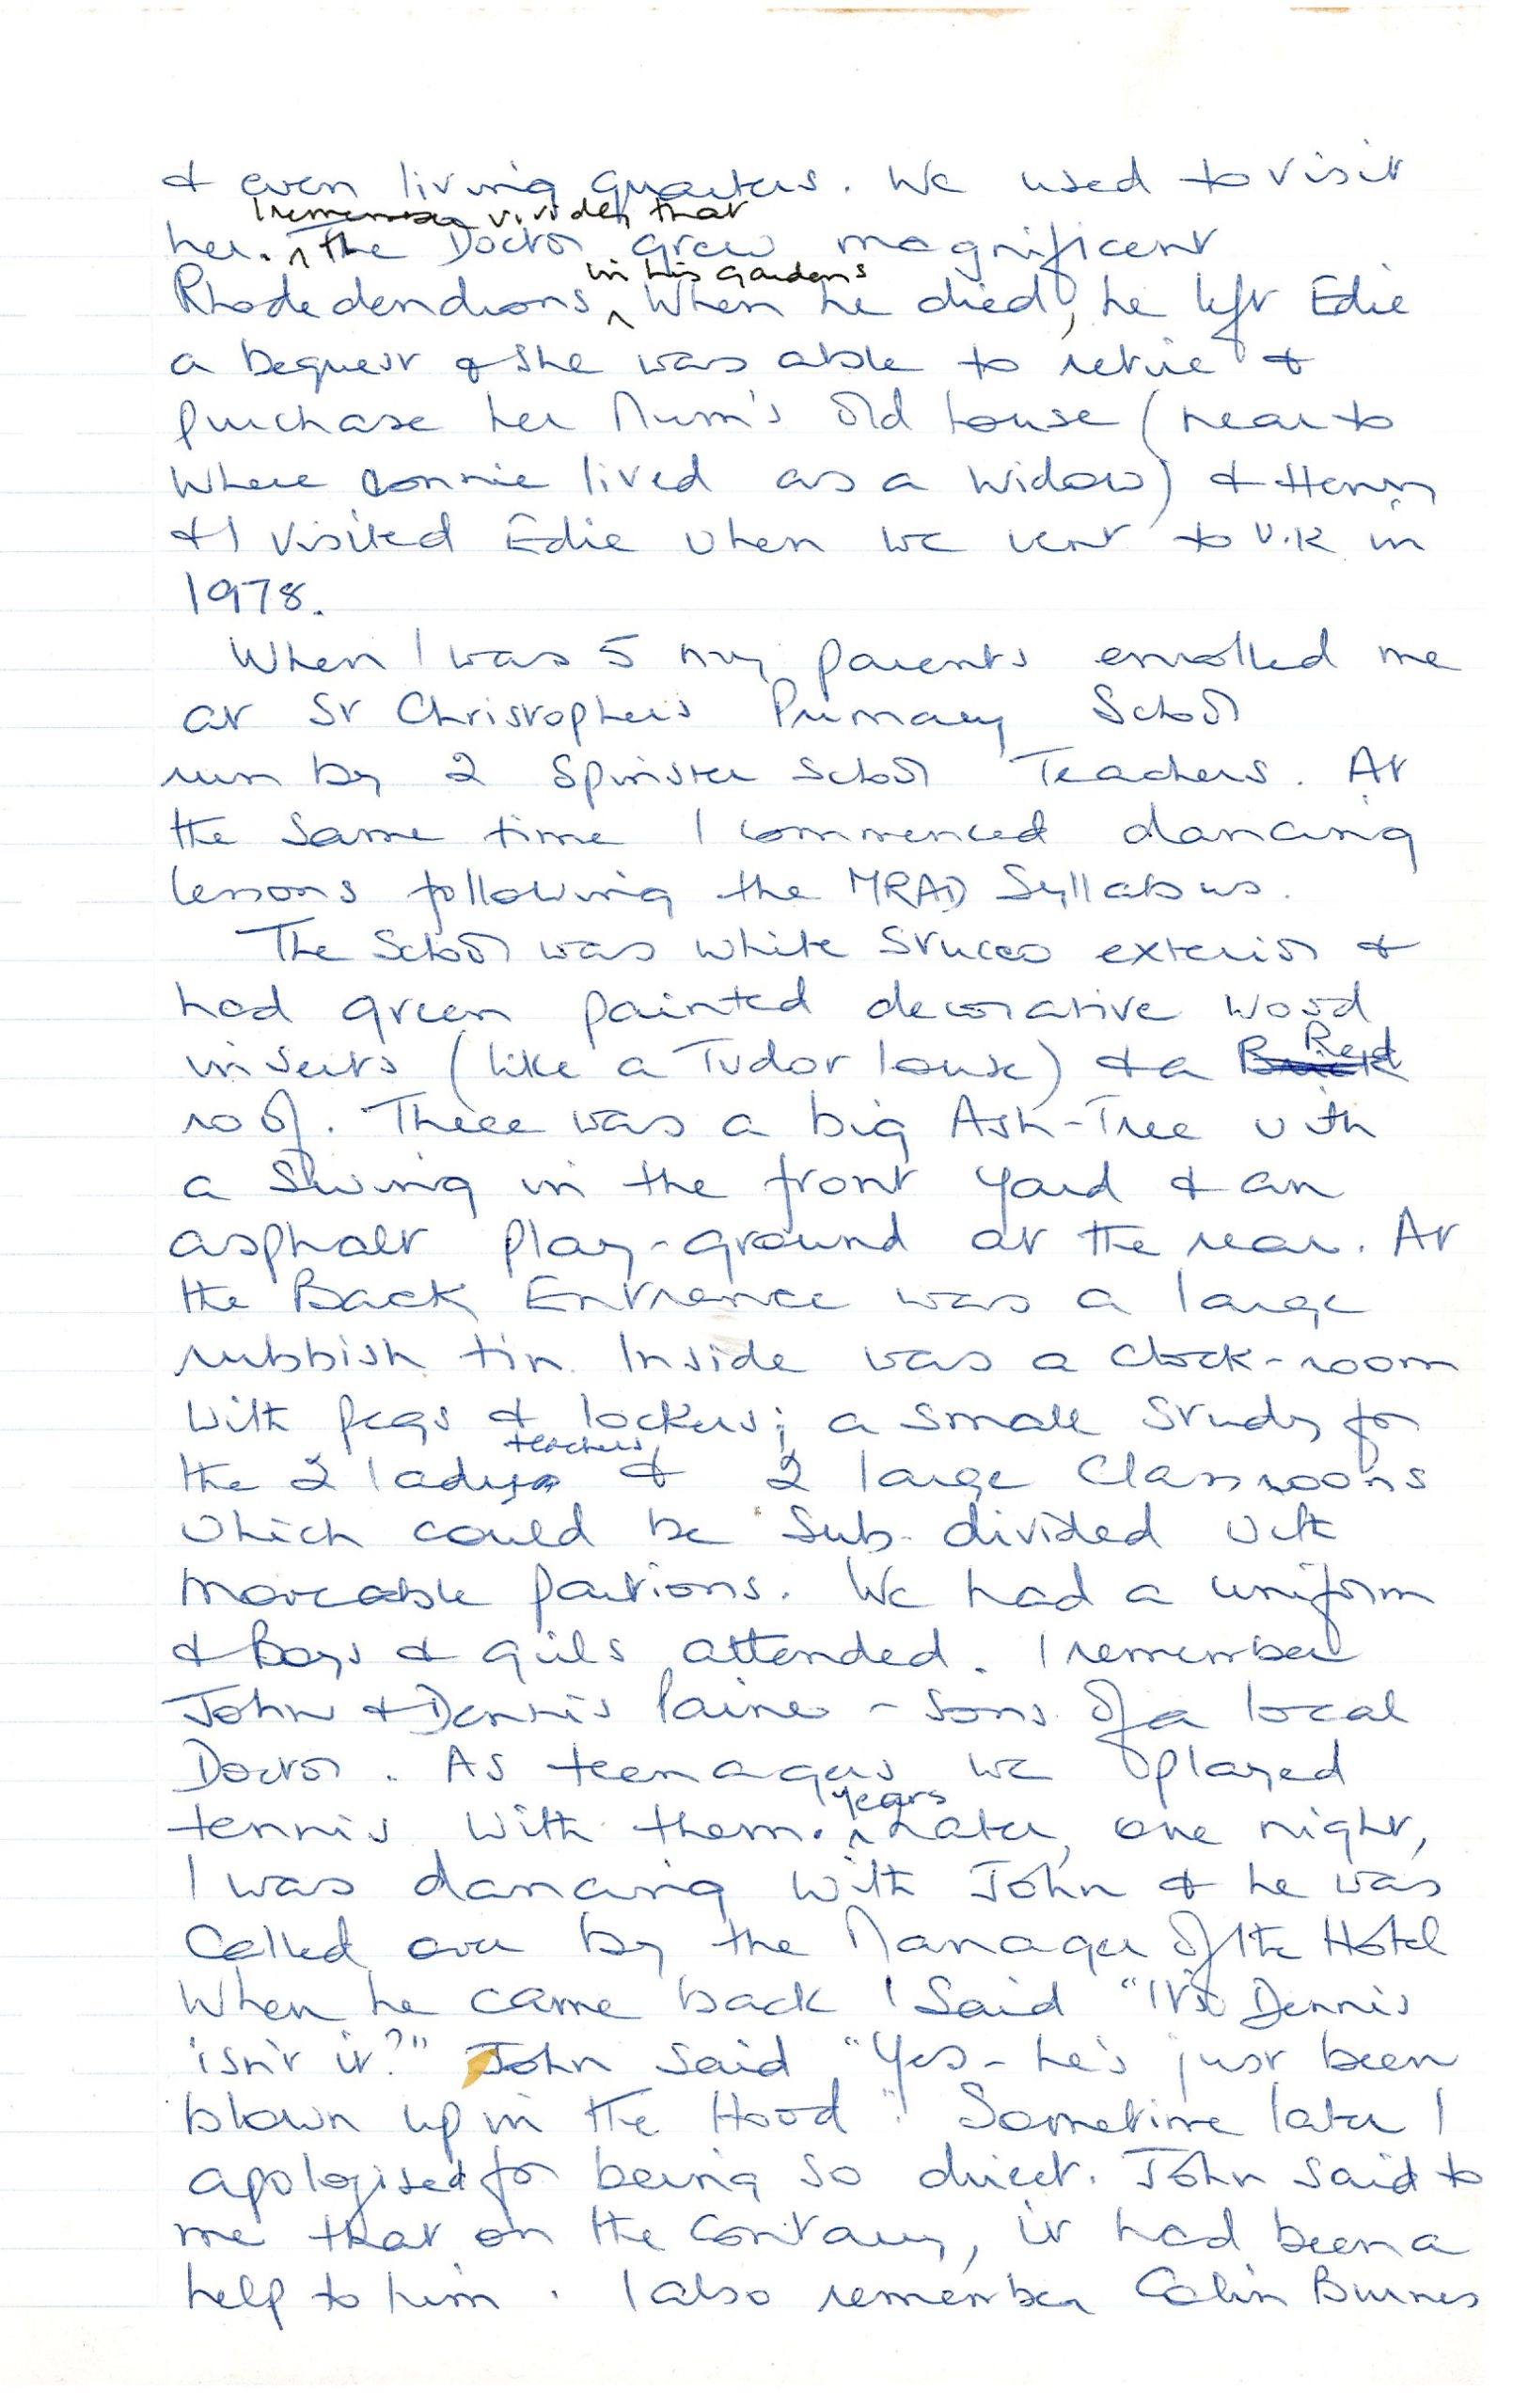 & even living quarters. We used to visit
I remember vividly that
her. ^ the Doctor grew magnificent
in his gardens
Rhodedendrons ^ When he died, he left Edie
a bequest & she was able to retire &
purchase her Mum's old house (near to
where Connie lived as a widow) & Henry
& I visited Edie when we went to U.K in
1978.
When I was 5 my parents enrolled me
at St Christophers Primary School
run by 2 Spinster School Teachers. At
the same time I commenced dancing
lessons following the MRAD Syllabus.
The School was white Stucco exterior &
had green painted decorative wood
inserts (like a Tudor house) & a Brick Red
roof. There was a big Ash-Tree with
a Swing in the front yard & an
asphalt play-ground at the rear. At
the Back Entrance was a large
rubbish tin. Inside was a cloak-room
with pegs & lockers; a small study for
teachers
the 2 ladys & 2 large Classrooms
which could be sub-divided with
moveable partions. We had a uniform
& Boys & girls attended. I remember
John & Dennis Paine - sons of a local
Doctor. As teenagers we played
years
tennis with them. ^ Later, one night,
I was dancing with John & he was
called over by the Manager of the Hotel
When he came back I said "It's Dennis
isn't it?" John said "Yes - he's just been
blown up in the Hood". Sometime later I
apologised for being so direct. John said to
me that on the contrary, it had been a
help to him. I also remember Colin Burnes